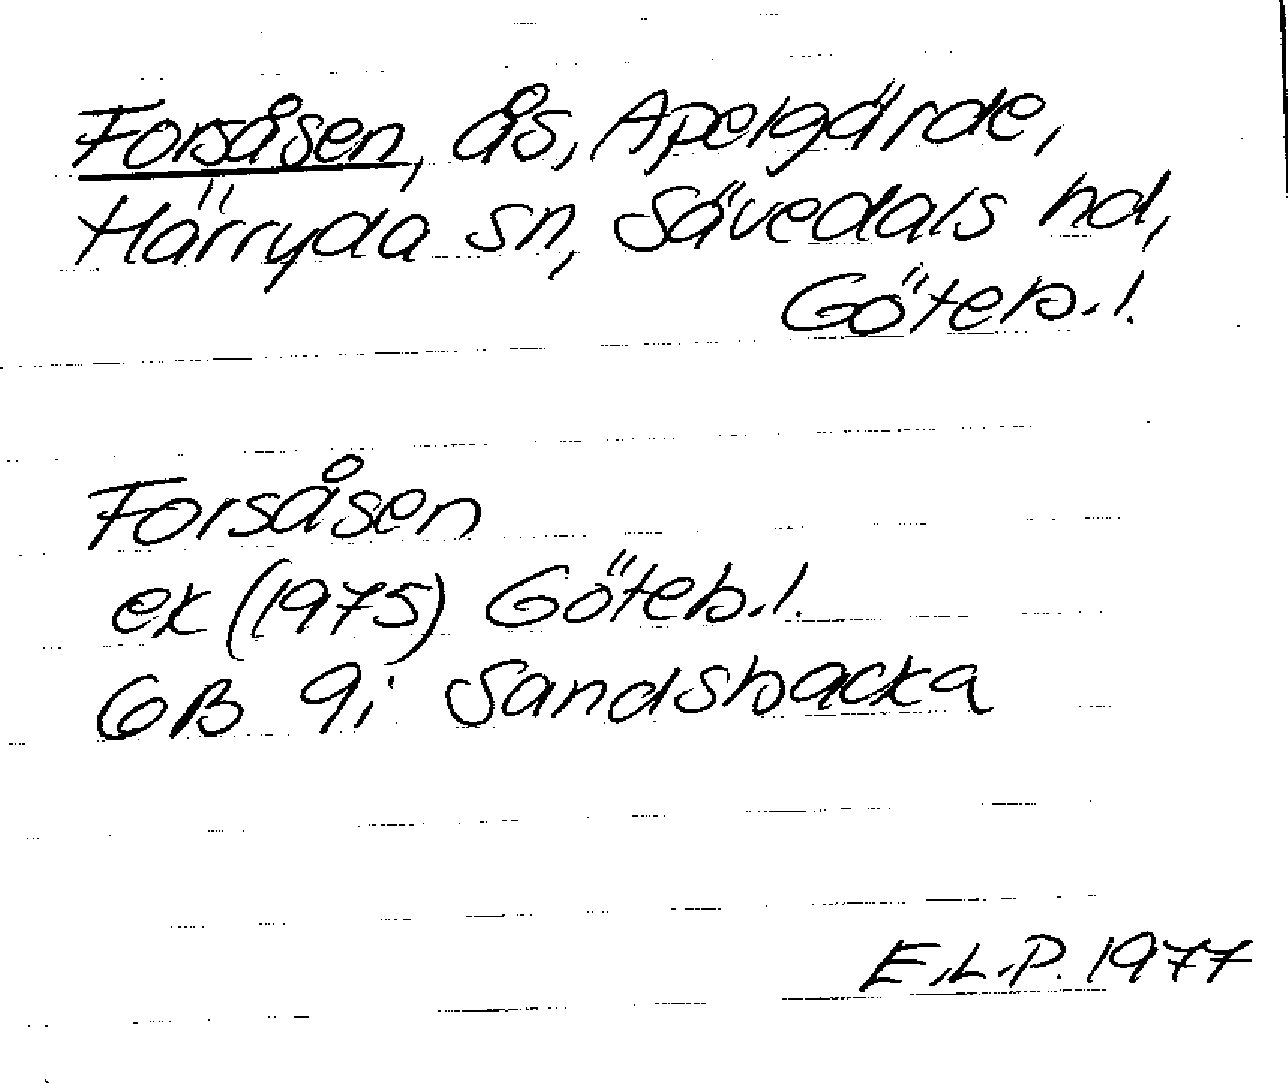 Forsåsen, ås, Apelgärde,
Härryda sn, Sävedals hd,
Göteb. l.
Forsåsen
ek (1975) Göteb. l.
GB 9i Sandsbacka
E.L.P. 1977